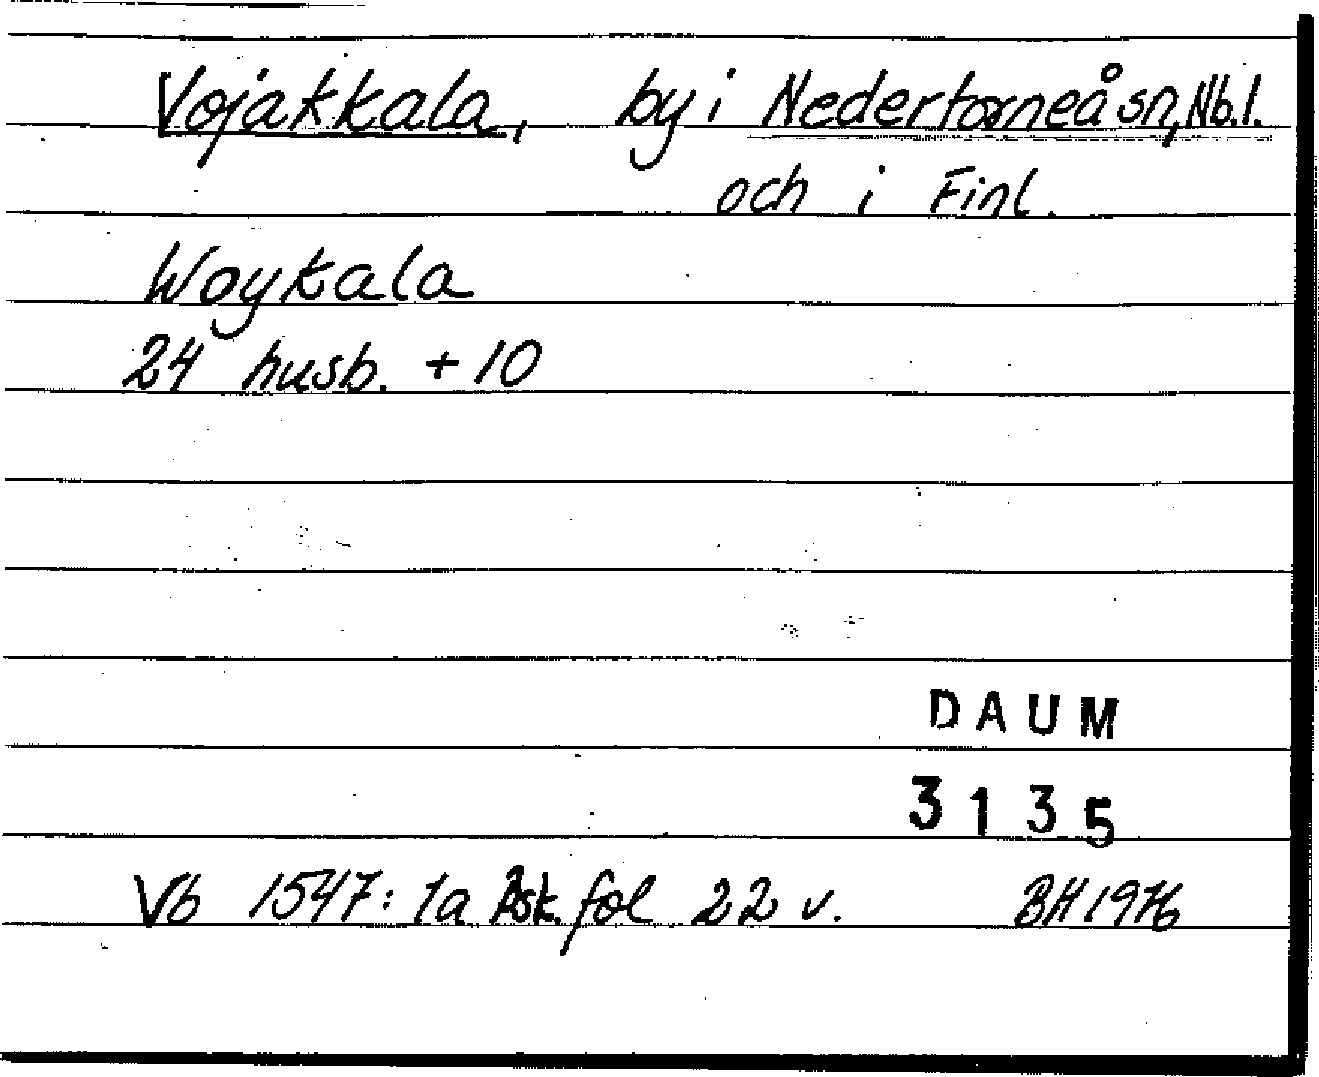 Vojakkala, by i Nedertorneå sn, Nb.l.
och i Finl.
Woykala
24 husb. + 10
DAUM
3135
Vb 1547: 1a Åsk. fol 22 v. BH 1976